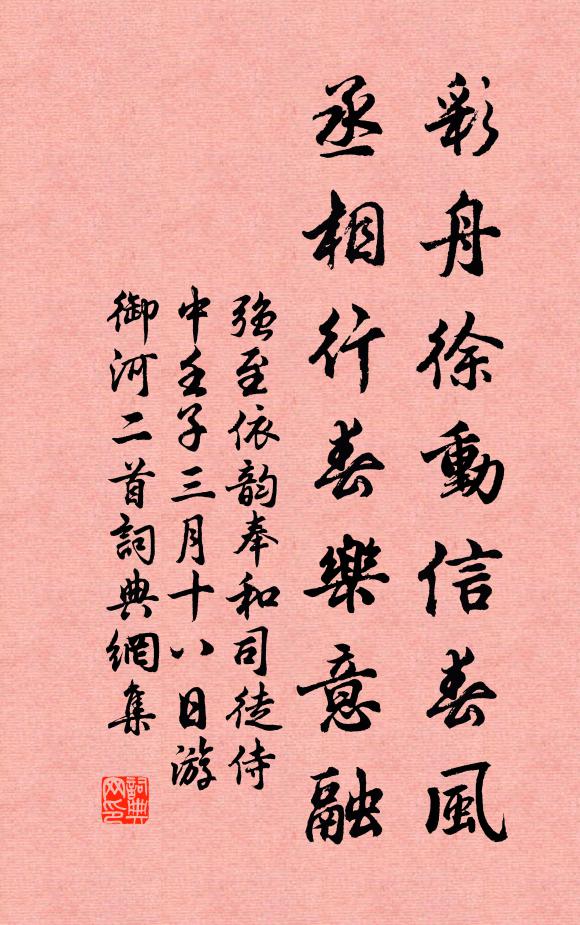 彩舟徐動信春風
丞相行春樂意融
強至依韵奉和司徒侍
中壬子三月十八日游
御河二首詞典網集
詞典
网印